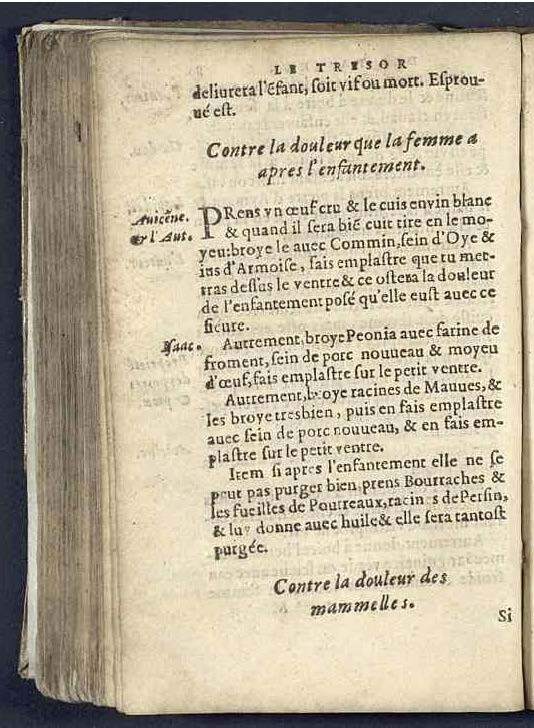 LE TRESOR
deliurera l'Ẽfant, soit vif ou mort. Esprou-
ué est.
Contre la douleur que la femme a
apres l'enfantement.
Auicẽne.
& l'Aut.
PRens vn œuf cru & le cuis en vin blanc
& quand il sera biẽ cuit tire en le mo-
yeu: broye le auec Commin, sein d'Oye &
ius d'Armoise, fais emplastre que tu met-
tras dessus le ventre & ce ostera la douleur
de l'enfantement posé qu'elle eust auec ce
fieure.
Isaac.
Autrement, broye Peonia auec farine de
froment, sein de porc nouueau & moyeu
d'œuf, fais emplastre sur le petit ventre.
Autrement, broye racines de Mauues, &
les broye tresbien, puis en fais emplastre
auec sein de porc nouueau, & en fais em-
plastre sur le petit ventre.
Item si apres l'enfantement elle ne se
peut pas purger bien, prens Bourraches &
les fueilles de Pourreaux, racines de Persin,
& luy donne auec huile & elle sera tantost
purgée.
Contre la douleur des
mammelles.
Si